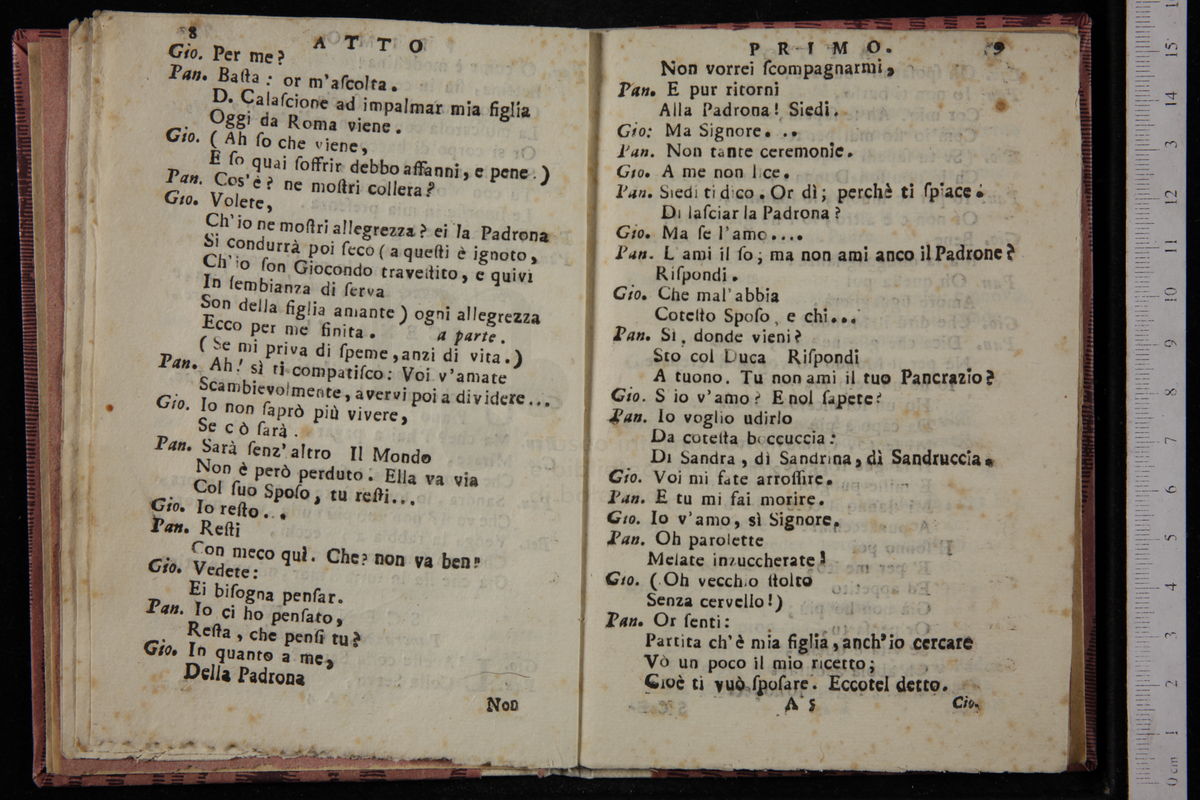 8
ATTO
Gio. Per me?
Pan. Baſta: or m'aſcolta.
D. Calaſcione ad impalmar mia figlia
Oggi da Roma viene.
Gio. (Ah ſo che viene,
E ſo quai ſoffrir debbo affanni, e pene.)
Pan. Cos'è? ne moſtri collera?
Gio. Volete,
Ch'io ne moſtri allegrezza? ei la Padrona
Si condurrà poi ſeco (a queſti è ignoto,
Ch'io ſon Giocondo traveſtito, e quivi
In ſembianza di ſerva
Son della figlia amante) ogni allegrezza
Ecco per me finita. a parte.
(Se mi priva di ſpeme, anzi di vita.)
Pan. Ah! sì ti compatiſco: Voi v'amate
Scambievolmente, avervi poi a dividere...
Gio. Io non ſaprò più vivere,
Se c ò ſarà.
Pan. Sarà ſenz'altro Il Mondo
Non è però perduto. Ella va via
Col ſuo Spoſo, tu reſti...
Gio. Io reſto...
Pan. Reſti
Con meco quì. Che? non va ben?
Gio. Vedete:
Ei biſogna penſar.
Pan. Io ci ho penſato,
Reſta, che penſi tu?
Gio. In quanto a me,
Della Padrona
Non
PRIMO. 9
Non vorrei ſcompagnarmi,
Pan. E pur ritorni
Alla Padrona! Siedi.
Gio: Ma Signore. ..
Pan. Non tante ceremonie.
Gio. A me non lice.
Pan. Siedi ti dico. Or dì; perchè ti ſpiace:
Di laſciar la Padrona?
Gio. Ma ſe l'amo....
Pan. L'ami il ſo; ma non ami anco il Padrone?
Riſpondi.
Gio. Che mal'abbia
Coteſto Spoſo, e chi...
Pan. Sì, donde vieni?
Sto col Duca Riſpondi
A tuono. Tu non ami il tuo Pancrazio?
Gio. S io v'amo? E nol ſapete?
Pan. Io voglio udirlo
Da coteſta boccuccia:
Di Sandra, dì Sandrina, dì Sandruccia.
Gio. Voi mi fate arroſſire.
Pan. E tu mi fai morire.
Gio. Io v'amo, sì Signore.
Pan. Oh parolette
Melate inzuccherate!
Gio. (Oh vecchio ſtolto
Senza cervello!)
Pan. Or ſenti:
Partita ch'è mia figlia, anch'io cercare
Vò un poco il mio ricetto;
Cioè ti vuò ſpoſare. Eccotel detto.
A 5
Cio.